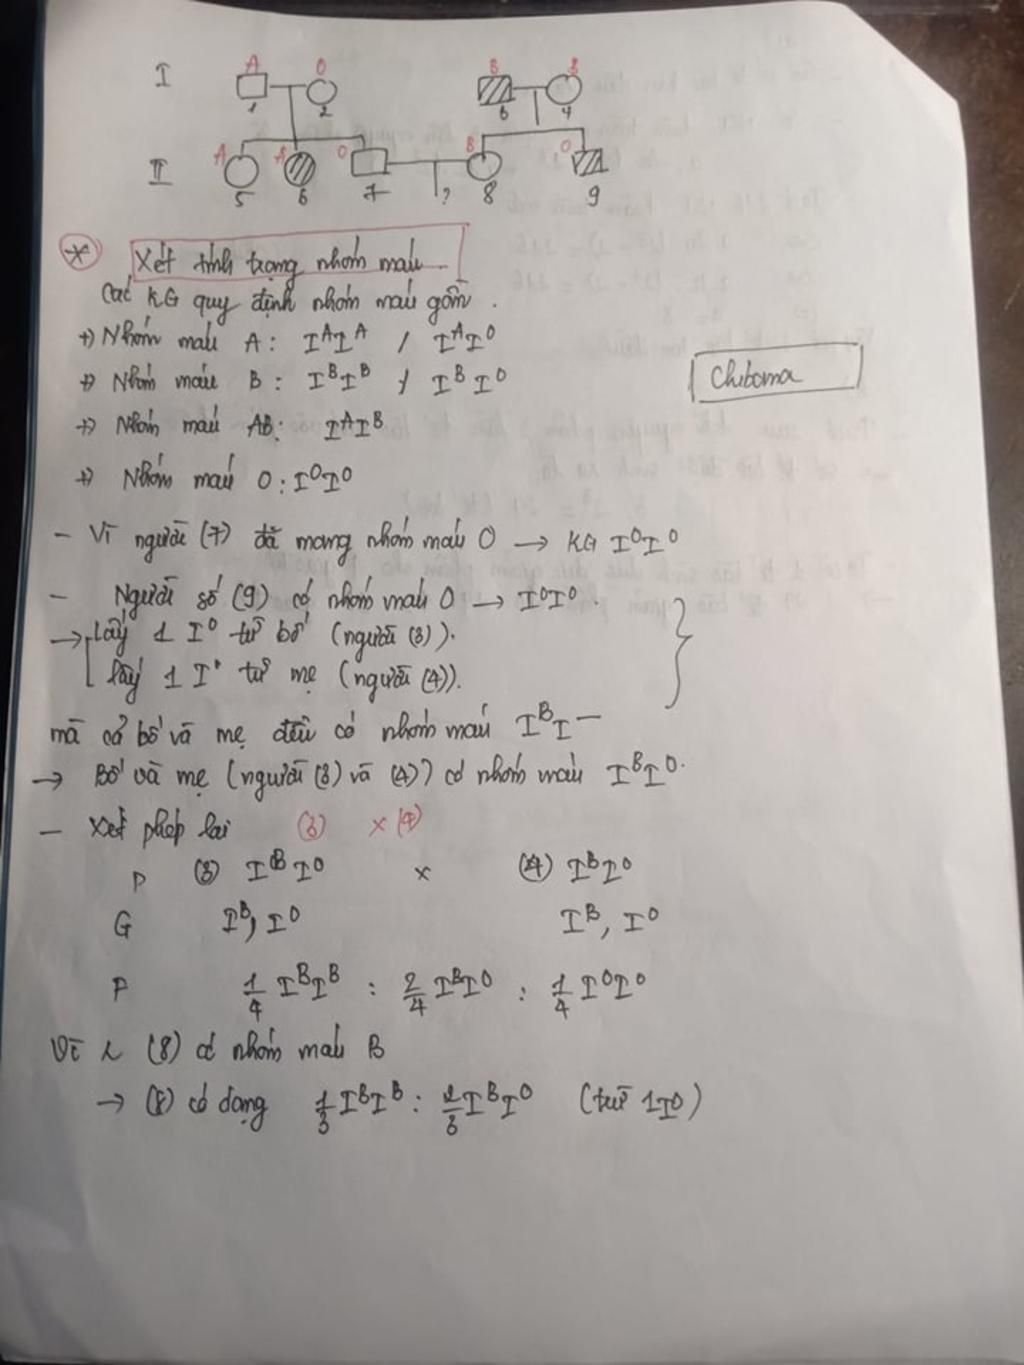 I
A
O
B
B
1
2
3
4
II
A
A
O
B
O
5
6
7
?
8
9
* Xét tính trạng nhóm máu
Các KG quy định nhóm máu gồm.
+) Nhóm máu A: I^A I^A / I^A I^O
+) Nhóm máu B: I^B I^B / I^B I^O
Chiboma
+) Nhóm máu AB: I^A I^B
+) Nhóm máu O: I^O I^O
- Vì người (7) đã mang nhóm máu O → KG I^O I^O
- Người số (9) có nhóm máu O → I^O I^O.
→ Lấy 1 I^O từ bố (người (3)).
lấy 1 I^O từ mẹ (người (4)).
mà cả bố và mẹ đều có nhóm máu I^B I^—
→ Bố và mẹ (người (3) và (4)) có nhóm máu I^B I^O.
- Xét phép lai (3) × (4)
P (3) I^B I^O × (4) I^B I^O
G I^B, I^O I^B, I^O
F 1/4 I^B I^B : 2/4 I^B I^O : 1/4 I^O I^O
Vì (8) có nhóm máu B
→ (8) có dạng 1/3 I^B I^B : 2/3 I^B I^O (trừ 1 I^O)